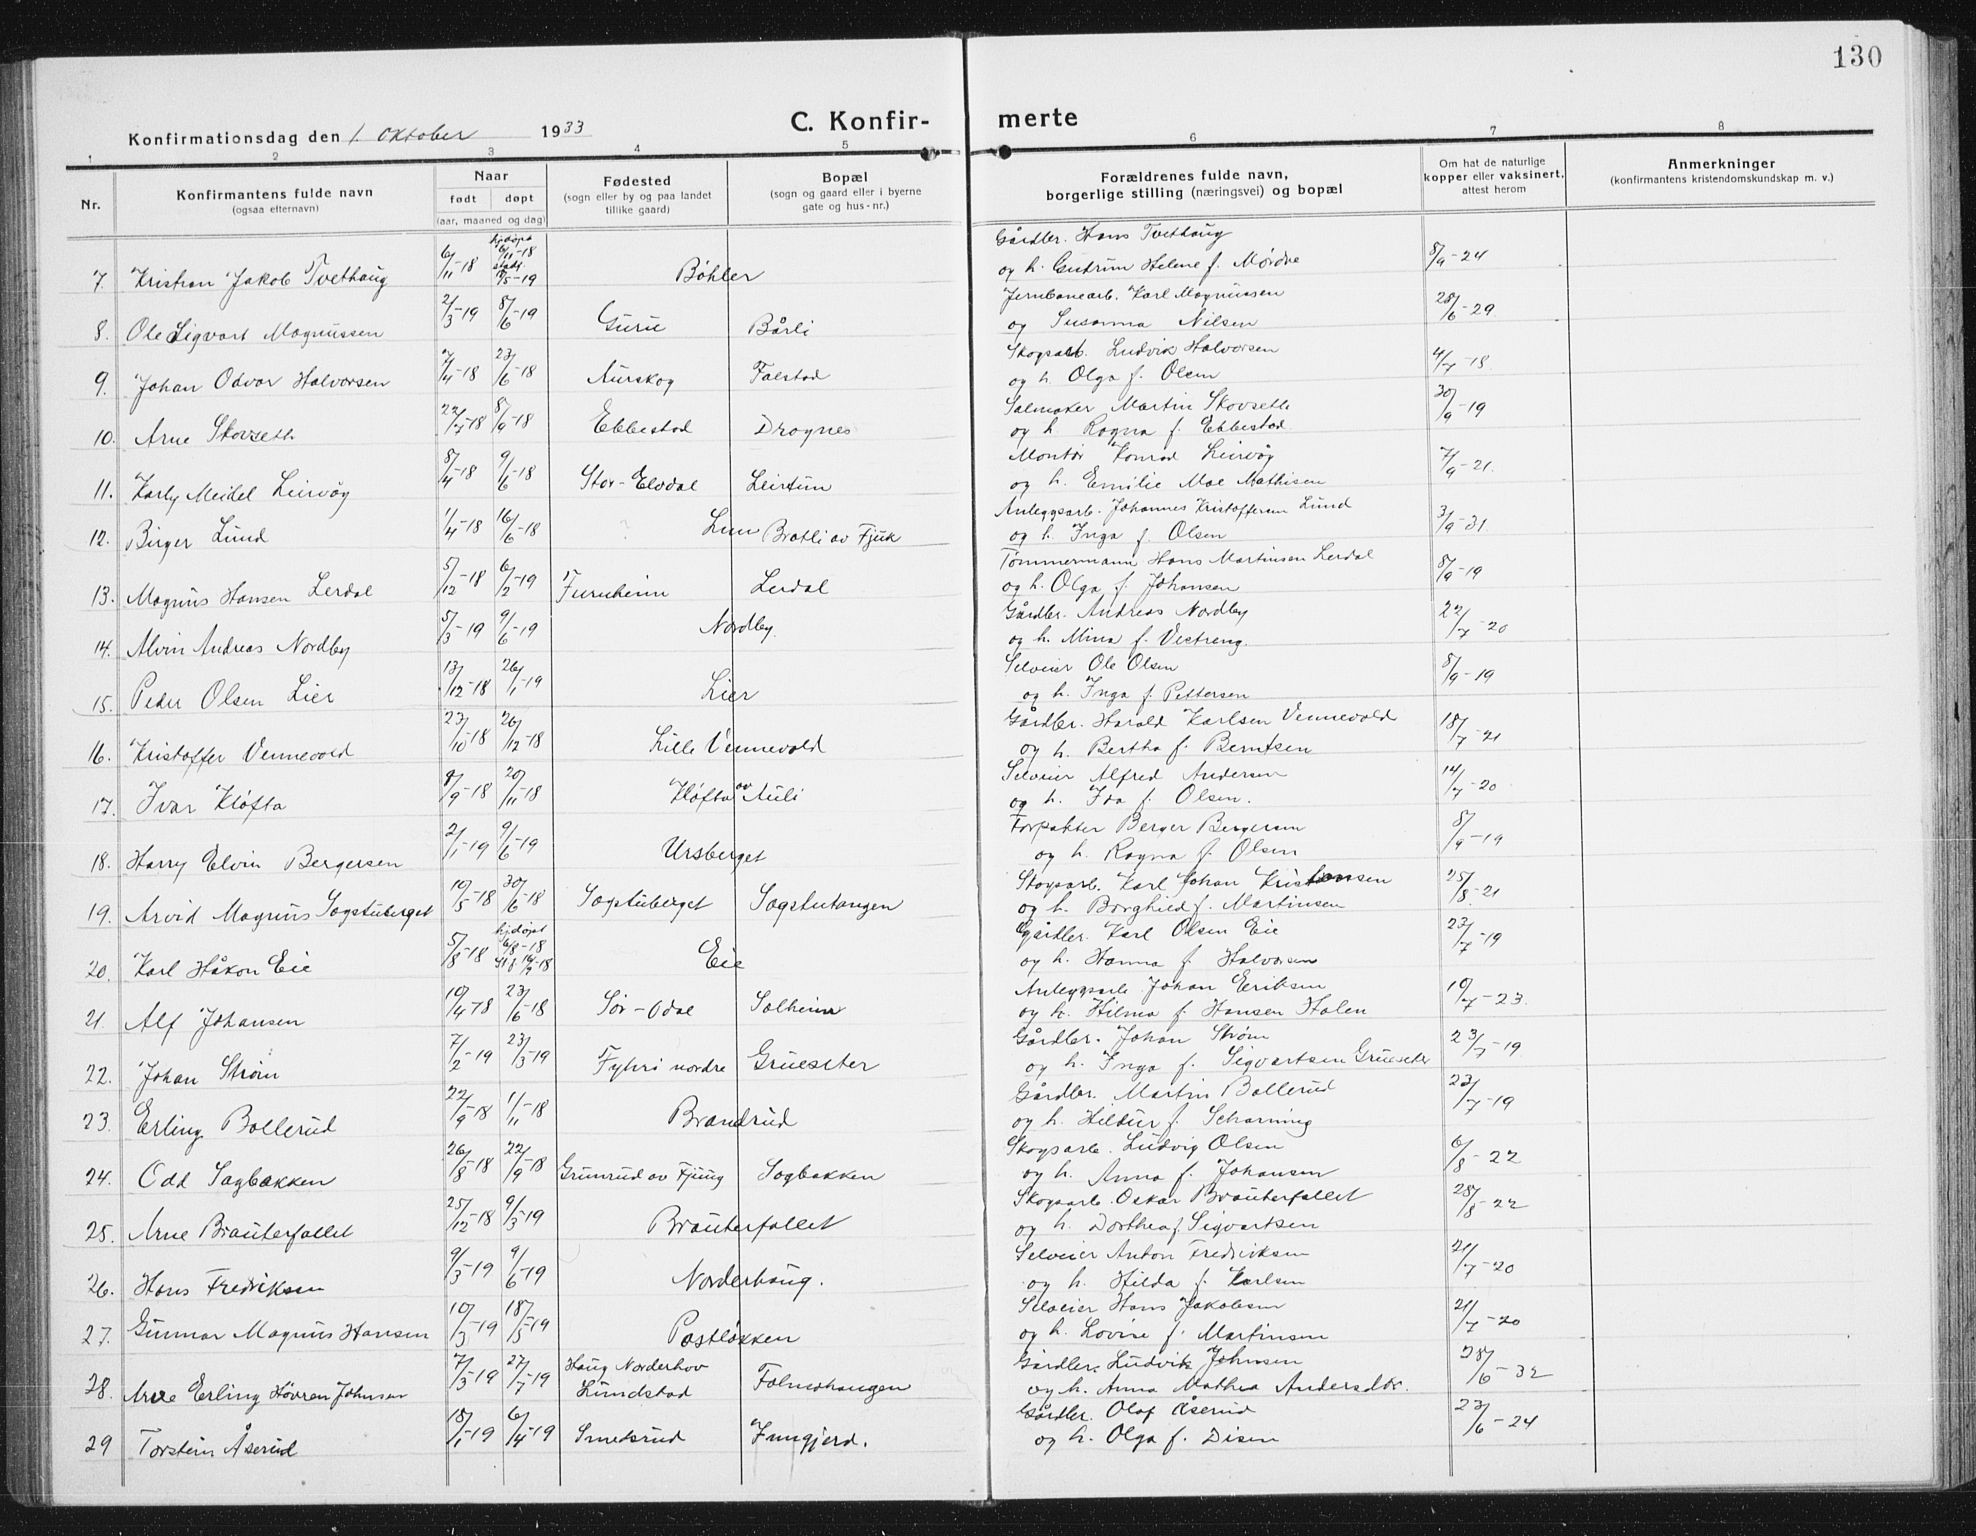 130
Konfirmationsdag den 1. oktober 1933
C. Konfir- merte
1 2 3 4 5 6 7 8
Nr.
Konfirmantens fulde navn
(ogsaa efternavn)
Naar
født døpt
(aar, maaned og dag)
Fødested
(sogn eller by og paa landet
tillike gaard)
Bopæl
(sogn og gaard eller i byerne
gate og hus-nr.)
Forældrenes fulde navn,
borgerlige stilling (næringsvei) og bopæl
Om hat de naturlige
kopper eller vaksinert,
attest herom
Anmerkninger
(konfirmantens kristendomskundskap m. v.)
7. Kristian Jakob Tvethaug 6/11-18 hjdøpt 6/11-18 stadf. /5-19 Bøhler Gårdbr. Hans Tvethaug 8/9-24
og h. Gudrun Helene f. Mørdre
8. Ole Sigvart Magnussen 2/3-19 8/6-19 Guru Bårli Jernbanearb. Karl Magnussen 28/6-29
og Susanna Nilsen
9. Johan Odvar Halvorsen 7/4-18 23/6-18 Aurskog Falstad Skogsarb. Ludvik Halvorsen 4/7-18
og h. Olga f. Olsen
10. Arne Skovseth 22/7-18 8/9-18 Ebbestad Drognes Salmaker Martin Skovseth 30/9-19
og h. Ragna f. Ebbestad.
11. Karly Meidel Leirvåg 8/4-18 9/6-18 Stor-Elvdal Leirtun Montør Konrad Leirvåg 7/9-21.
og h. Emilie Moe Mathisen
12. Birger Lund 1/4-18 16/6-18 Lun Bratli av Fjuk Anleggsarb. Johannes Kristoffersen Lund 3/9-31
og h. Inga f. Olsen
13. Magnus Hansen Lerdal 5/12-18 6/2-19 Furuheim Lerdal Tømmermann Hans Martinsen Lerdal 8/9-19
og h. Olga f. Johansen
14. Alvin Andreas Nordby 5/3-19 9/6-19 Nordby. Gårdbr. Andreas Nordby 22/7-20
og h. Mina f. Vestreng.
15. Peder Olsen Lier 13/12-18 26/1-19 Lier Selveier Ole Olsen 8/9-19
og h. Inga f. Pettersen
16. Kristoffer Vennevold 23/10-18 26/12-18 Lille Vennevold Gårdbr. Harald Karlsen Vennevold 18/7-21
og h. Bertha f. Berntsen
17. Ivar Kløfta 8/9-18 20/11-18 Kløfta av Auli Selveier Alfred Andersen 14/7-20
og h. Ida f. Olsen.
18. Harry Elvin Bergersen 2/1-19 9/6-19 Ursberget Forpakter Berger Bergersen 8/9-19
og h. Ragna f. Olsen
19. Arvid Magnus Sagstuberget 10/5-18 30/6-18 Sagstuberget Sagstutangen Skogsarb. Karl Johan Kristiansen 25/8-21
og h. Borghild f. Martinsen
20. Karl Håkon Eie 5/8-18 hjdøpt 6/8-18 Eie Gårdbr. Karl Olsen Eie 23/7-19
og h. Hanna f. Halvorsen
21. Alf Johansen 10/4-18 23/6-18 Sør-Odal Solheim Anleggsarb. Johan Eriksen 10/7-23.
og h. Hilma f. Hansen Holen
22. Johan Strøm 7/2-19 23/3-19 Fyhri nordre Grueseter Gårdbr. Johan Strøm 23/7-19
og h. Inga f. Sigvartsen Grueseter
23. Erling Bollerud 22/9-18 1/11-18 Brandrud Gårdbr. Martin Bollerud 23/7-19
og h. Hildur f. Scharning
24. Odd Sagbakken 26/8-18 22/9-18 Grunrud av Fjuug Sagbakken Skogsarb. Ludvig Olsen 6/8-22
og h. Anna f. Johansen
25. Arne Brauterfallet 25/12-18 9/3-19 Brauterfallet Skogsarb. Oskar Brauterfallet 28/8-22
og h. Dorthea f. Sigvartsen
26. Hans Fredriksen 9/3-19 9/6-19 Norderhaug. Selveier Anton Fredriksen 21/7-20
og h. Hilda f. Karlsen
27. Gunnar Magnus Hansen 10/3-19 18/5-19 Postløkken Selveier Hans Jakobsen 21/7-20
og h. Lovise f. Martinsen
28. Arne Erling Høvren Johnsen 7/3-19 27/7-19 Haug Norderhov Lundstad Falmohaugen Gårdbr. Ludvik Johnsen 28/6-32
og h. Anna Mathea Andersdtr.
29 Torstein Åserud 18/1-19 6/4-19 Smedsrud Inngjerd. Gårdbr. Olaf Åserud 23/6-24
og h. Olga f. Disen